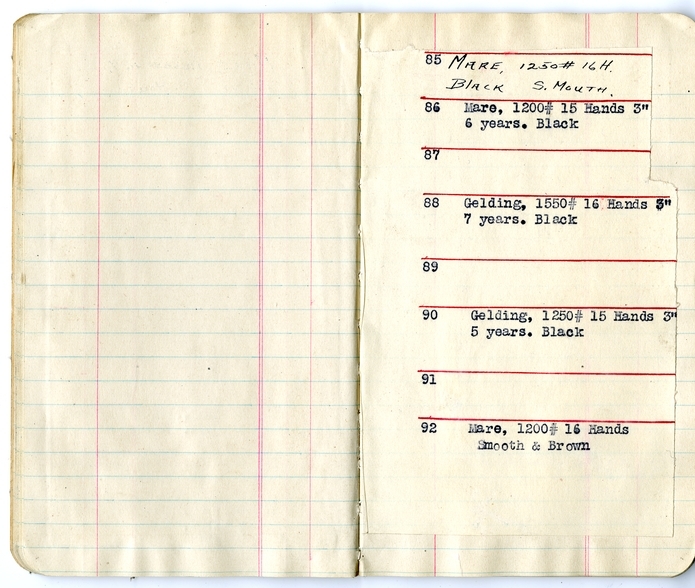 85 MARE, 1250# 16H.
BLACK S. MOUTH.
86 Mare, 1200# 15 Hands 3"
6 years. Black
87
88 Gelding, 1550# 16 Hands 3"
7 years. Black
89
90 Gelding, 1250# 15 Hands 3"
5 years. Black
91
92 Mare, 1200# 16 Hands
Smooth & Brown